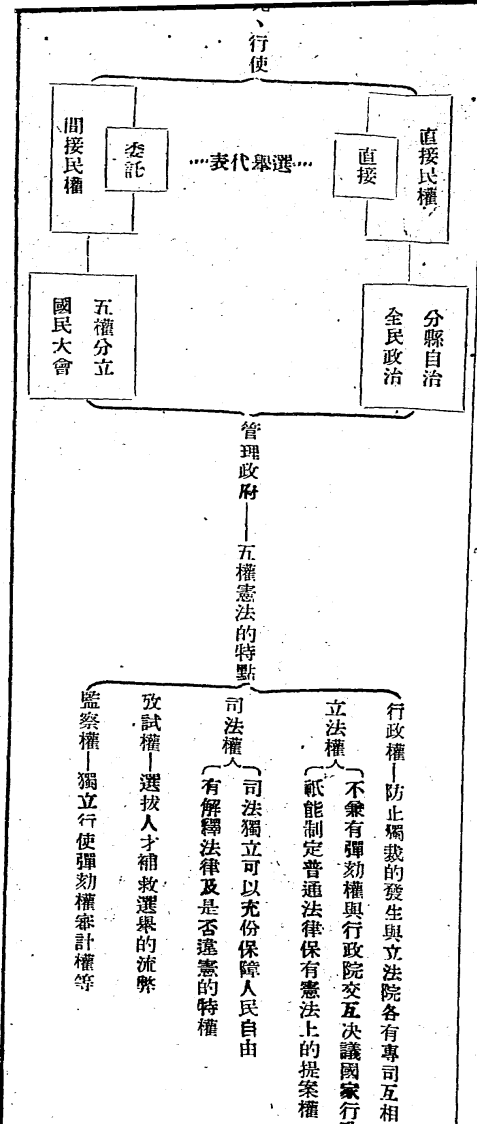 、行使
直接民權
直接
選舉代表
委託
間接民權
分縣自治
全民政治
五權分立
國民大會
管理政府——五權憲法的特點
行政權—防止獨裁的發生與立法院各有專司互相
立法權
不兼有彈劾權與行政院交互決議國家行
祇能制定普通法律保有憲法上的提案權
司法權
司法獨立可以充份保障人民自由
有解釋法律及是否違憲的特權
攷試權—選拔人才補救選舉的流弊
監察權—獨立行使彈劾權審計權等